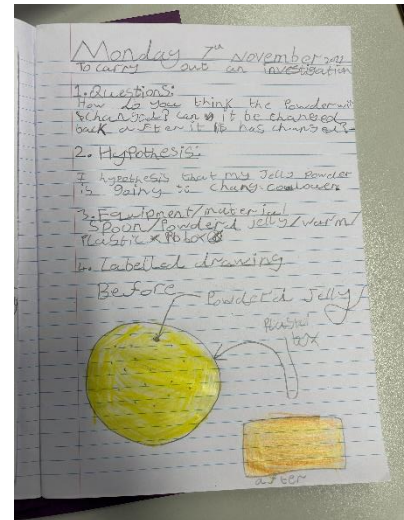 Monday 7th November 2022
To carry out an investigation
1. Questions:
How do you think the Powder will
change? Can it be changed
back after it has changed?
2. Hypothesis:
I hypothesis that my Jelly Powder
is going to chang coulour
3. Equipment/material
Spoon/Powderd jelly/warm/
Plastic box
4. Labelled drawing
Before
Powderd Jelly
Plastic
box
after